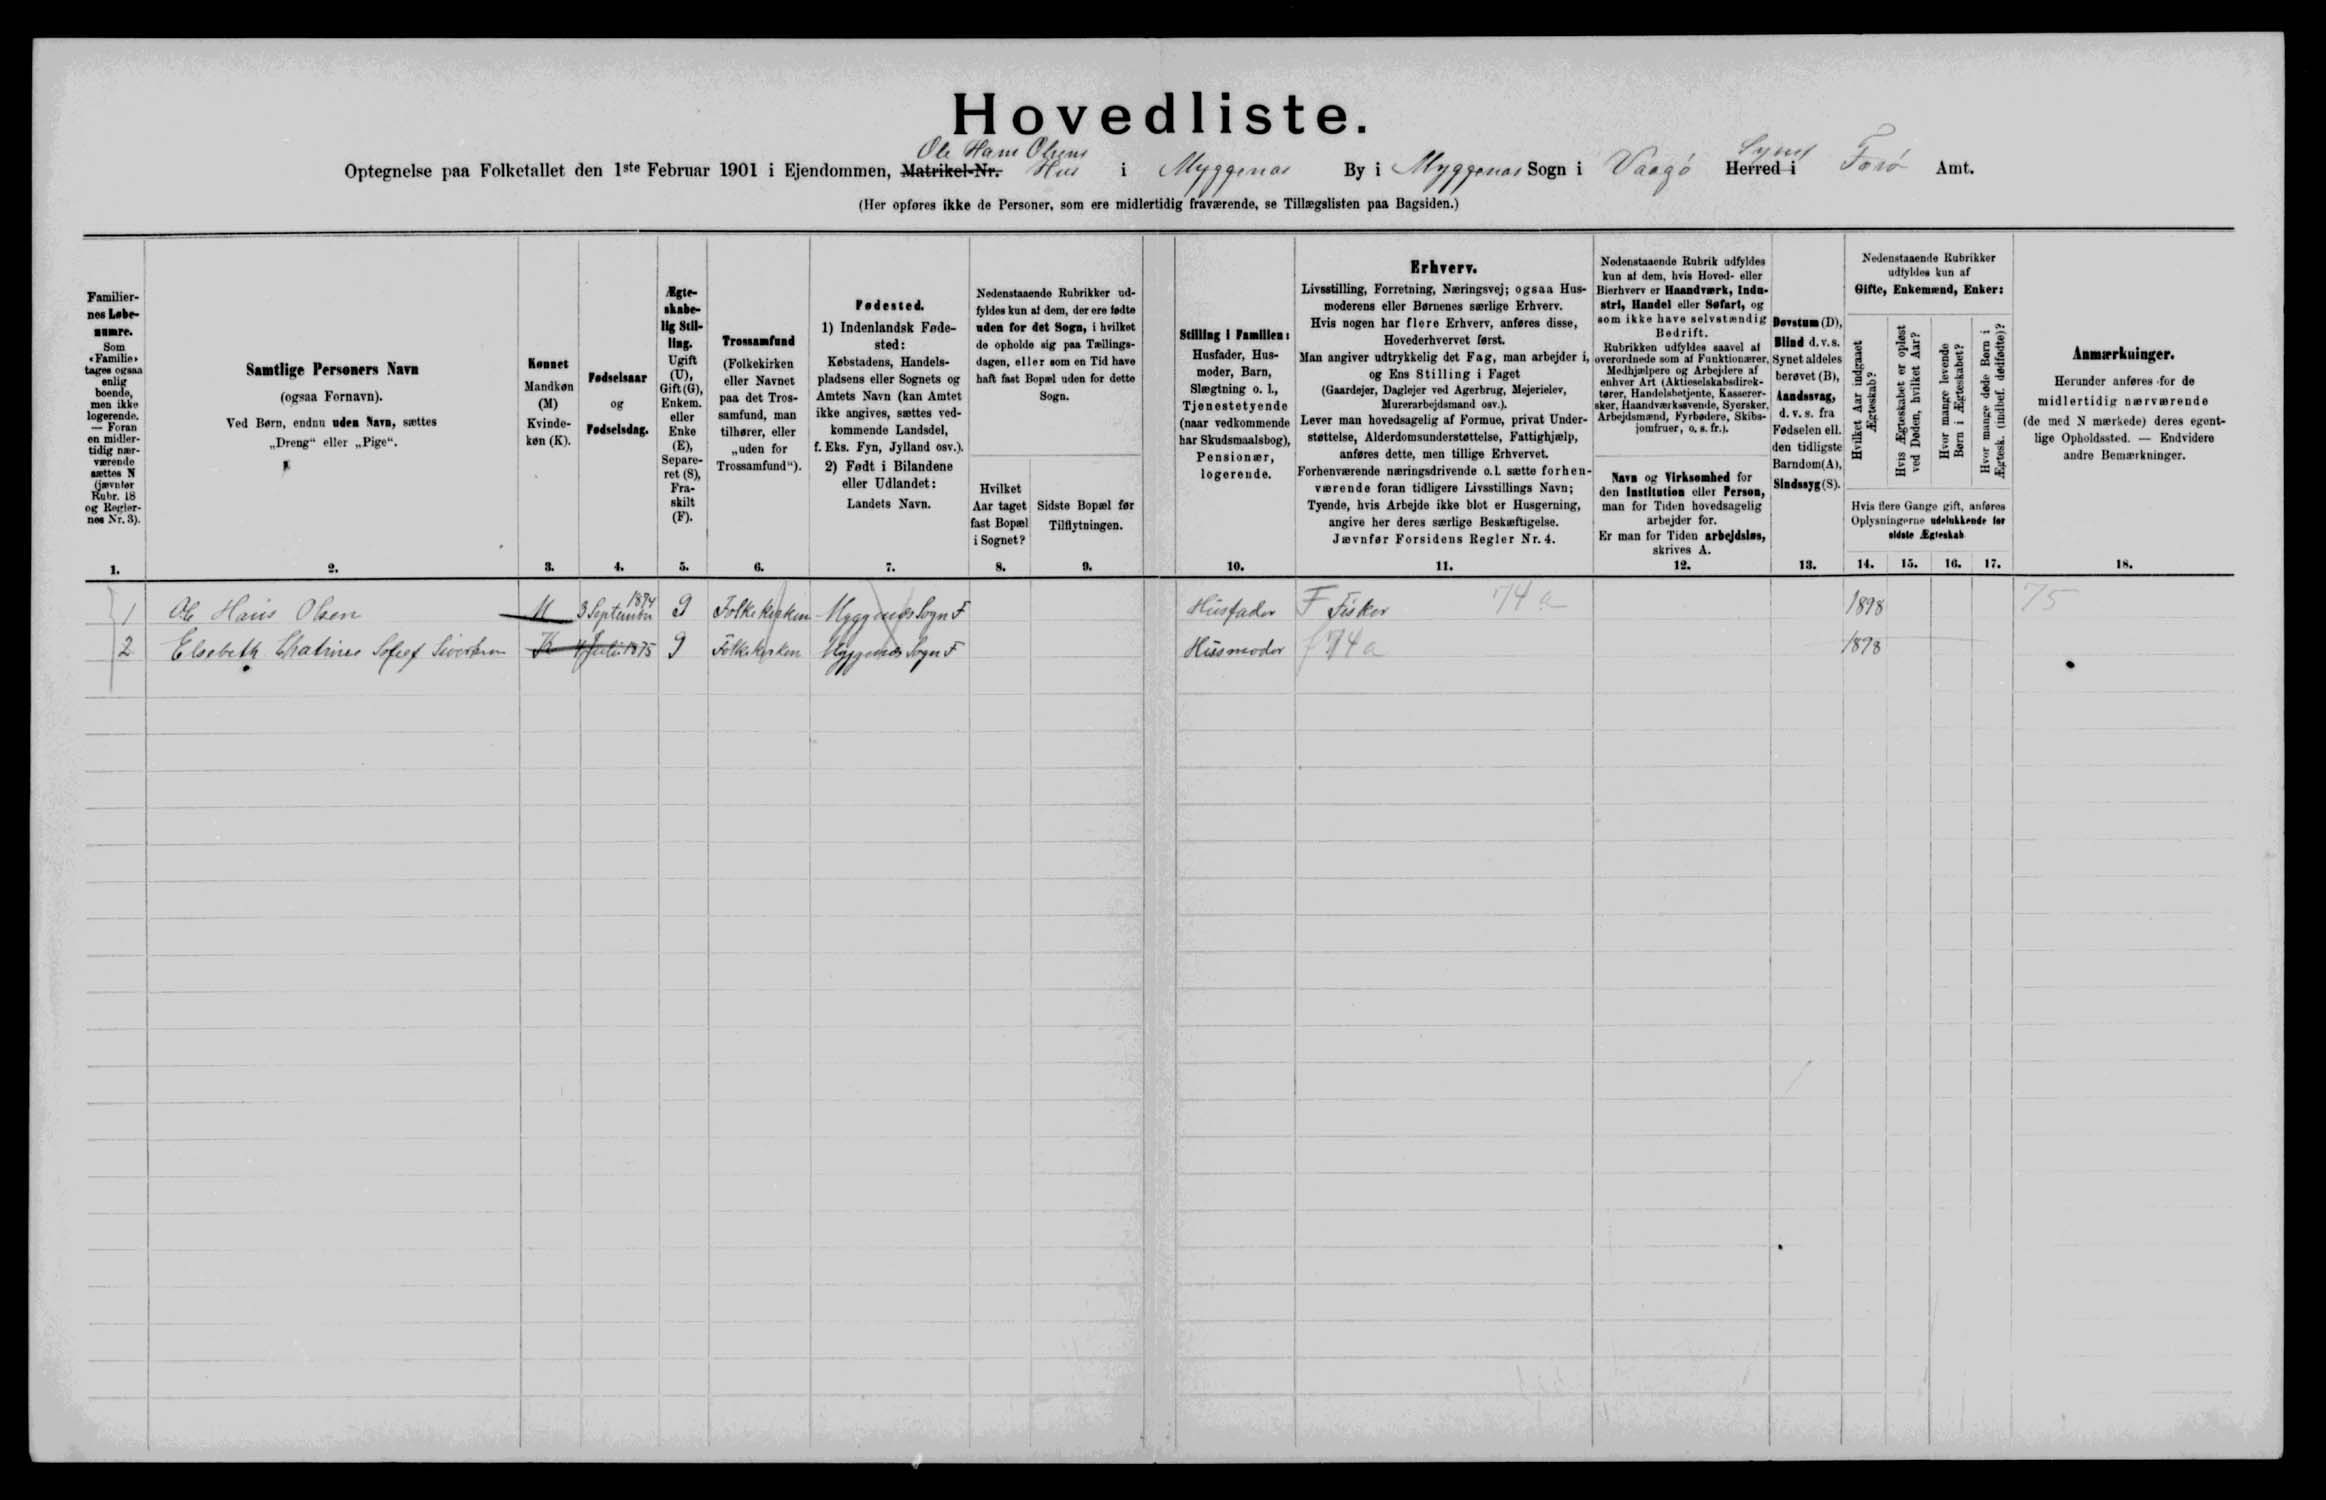 Hovedliste.
Ole Hans Olsens
Optegnelse paa Folketallet den 1ste Februar 1901 i Ejendommen, Matrikel-Nr. Hus i Myggenæs By i Myggenæs Sogn i Vaagø Herred i Syssel Færø Amt.
(Her opføres ikke de Personer, som ere midlertidig fraværende, se Tillægslisten paa Bagsiden.)
Familier-
nes Løbe-
numre.
Som
«Familie»
tages ogsaa
enlig
boende,
men ikke
logerende.
— Foran
en midler-
tidig nær-
værende
sættes N
(jævnfør
Rubr. 18
og Regler-
nes Nr. 3).
1.
Samtlige Personers Navn
(ogsaa Fornavn).
Ved Børn, endnu uden Navn, sættes
„Dreng“ eller „Pige“.
2.
Kønnet
Mandkøn
(M)
Kvinde-
køn (K).
3.
Fødselsaar
og
Fødselsdag.
4.
Ægte-
skabe-
lig Stil-
ling.
Ugift
(U),
Gift (G),
Enkem.
eller
Enke
(E),
Separe-
ret (S),
Fra-
skilt
(F).
5.
Trossamfund
(Folkekirken
eller Navnet
paa det Tros-
samfund, man
tilhører, eller
„uden for
Trossamfund“).
6.
Fødested.
1) Indenlandsk Føde-
sted:
Købstadens, Handels-
pladsens eller Sognets og
Amtets Navn (kan Amtet
ikke angives, sættes ved-
kommende Landsdel,
f. Eks. Fyn, Jylland osv.).
2) Født i Bilandene
eller Udlandet:
Landets Navn.
7.
Nedenstaaende Rubrikker ud-
fyldes kun af dem, der ere fødte
uden for det Sogn, i hvilket
de opholde sig paa Tællings-
dagen, eller som en Tid have
haft fast Bopæl uden for dette
Sogn.
Hvilket
Aar taget
fast Bopæl
i Sognet?
8.
Sidste Bopæl før
Tilflytningen.
9.
Stilling i Familien:
Husfader, Hus-
moder, Barn,
Slægtning o. l.,
Tjenestetyende
(naar vedkommende
har Skudsmaalsbog),
Pensionær,
logerende.
10.
Erhverv.
Livsstilling, Forretning, Næringsvej; ogsaa Hus-
moderens eller Børnenes særlige Erhverv.
Hvis nogen har flere Erhverv, anføres disse,
Hovederhvervet først.
Man angiver udtrykkelig det Fag, man arbejder i,
og Ens Stilling i Faget
(Gaardejer, Daglejer ved Agerbrug, Mejerielev,
Murerarbejdsmand osv.).
Lever man hovedsagelig af Formue, privat Under-
støttelse, Alderdomsunderstøttelse, Fattighjælp,
anføres dette, men tillige Erhvervet.
Forhenværende næringsdrivende o.l. sætte forhen-
værende foran tidligere Livsstillings Navn;
Tyende, hvis Arbejde ikke blot er Husgerning,
angive her deres særlige Beskæftigelse.
Jævnfør Forsidens Regler Nr. 4.
11.
Nedenstaaende Rubrik udfyldes
kun af dem, hvis Hoved- eller
Bierhverv er Haandværk, Indu-
stri, Handel eller Søfart, og
som ikke have selvstændig
Bedrift.
Rubrikken udfyldes saavel af
overordnede som af Funktionærer,
Medhjælpere og Arbejdere af
enhver Art (Aktieselskabsdirek-
tører, Handelsbetjente, Kasserer-
sker, Haandværkssvende, Syersker,
Arbejdsmænd, Fyrbødere, Skibs-
jomfruer, o. s. fr.).
Navn og Virksomhed for
den Institution eller Person,
man for Tiden hovedsagelig
arbejder for.
Er man for Tiden arbejdsløs,
skrives A.
12.
Døvstum (D),
Blind d. v. s.
Synet aldeles
berøvet (B),
Aandssvag,
d. v. s. fra
Fødselen ell.
den tidligste
Barndom(A),
Sindssyg(S).
13.
Nedenstaaende Rubrikker
udfyldes kun af
Gifte, Enkemænd, Enker:
Hvilket Aar indgaaet
Ægteskab?
Hvis Ægteskabet er opløst
ved Døden, hvilket Aar?
Hvor mange levende
Børn i Ægteskabet?
Hvor mange døde Børn i
Ægtesk. (indbef. dødfødte)?
Hvis flere Gange gift, anføres
Oplysningerne udelukkende for
sidste Ægteskab
14. 15. 16. 17.
Anmærkninger.
Herunder anføres for de
midlertidig nærværende
(de med N mærkede) deres egent-
lige Opholdssted. — Endvidere
andre Bemærkninger.
18.
1 Ole Hans Olsen M 3 September 1874 G Folkekirken Myggenæs Sogn F Husfader F Fisker 74 a 1898 75
2 Elsebeth Chatrine Sofief Sivertsen K 4 Juli 1875 G Folkekirken Myggenæs Sogn F Husmoder f 74 a 1898